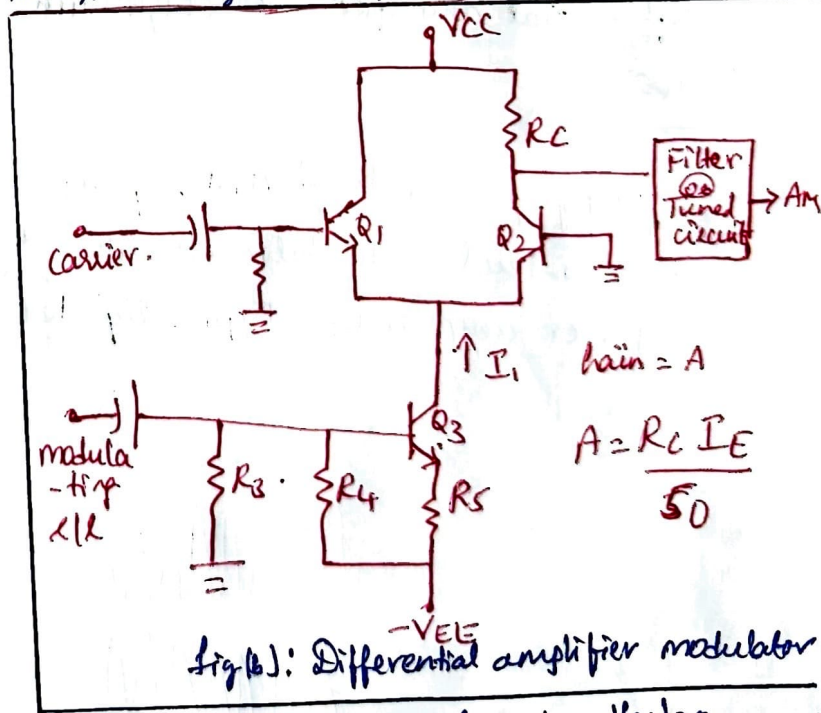 VCC
RC
Filter
(or)
Tuned
circuit
AM
Carrier.
Q1
Q2
I1
Gain = A
Q3
A = RC IE
50
modula
-ting
R3.
R4
R5
-VEE
fig(b): Differential amplifier modulator